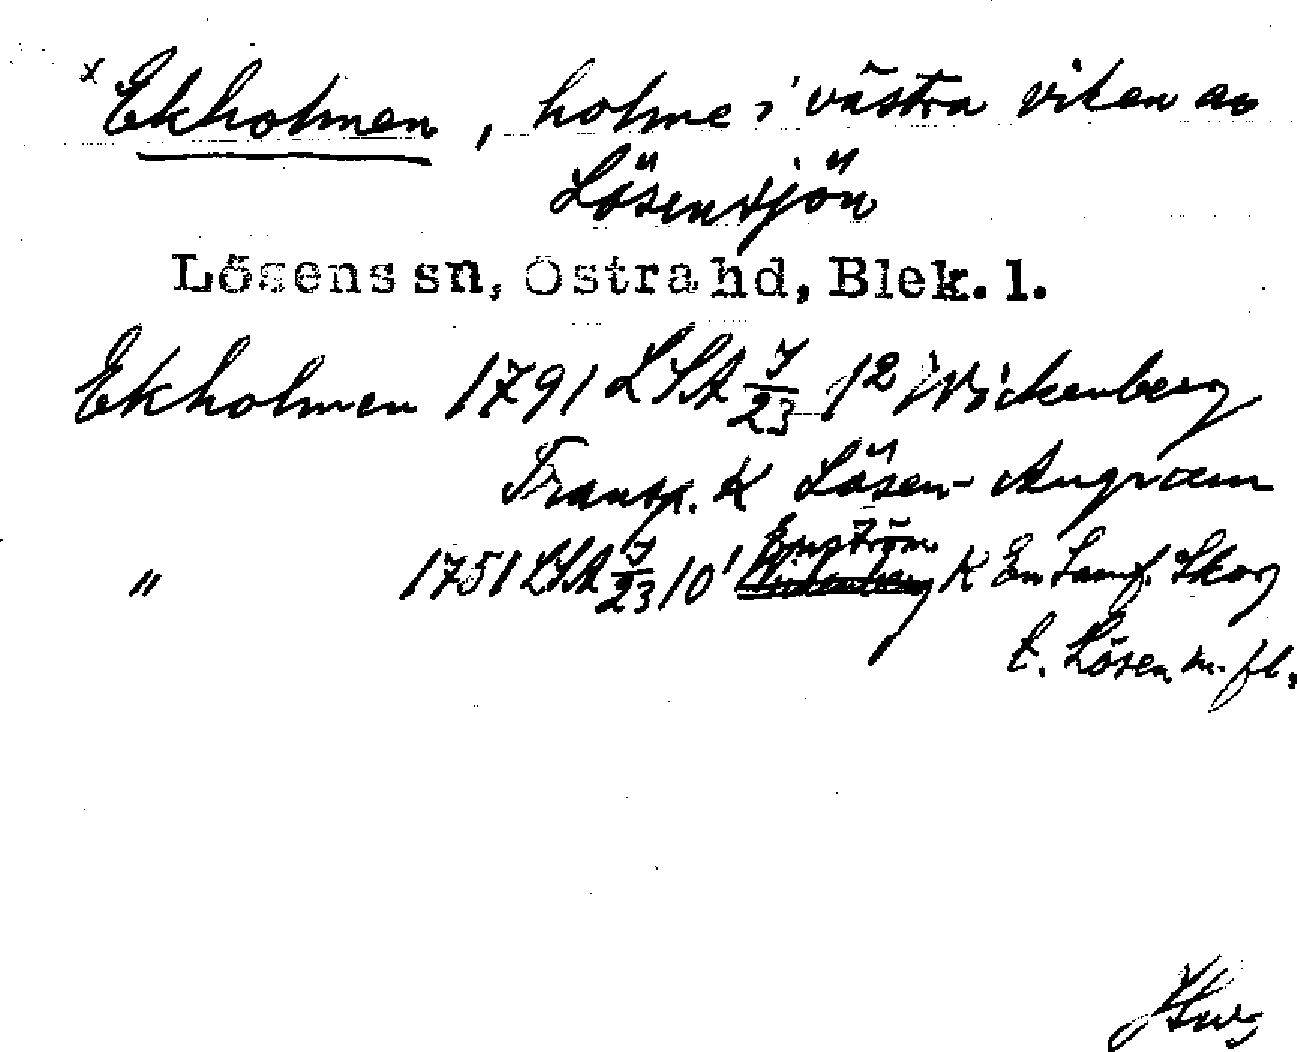 x Ekholmen, holme i västra viken av
Lösensjön
Lösens sn, Östra hd, Blek. l.
Ekholmen 1791 LSA 7/23 12 Wickenberg
Transp. K Lösen - Augerum
" 1751 LSA 7/23 10¹ Enström K En Samf. Skog
t. Lösen m. fl.